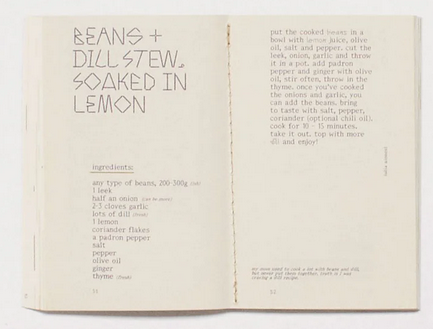 BEANS +
DILL STEW.
SOAKED IN
LEMON
ingredients:
any type of beans, 200-300g
1 leek
half an onion (can be more)
2-3 cloves garlic
lots of dill (fresh)
1 lemon
coriander flakes
a padron pepper
salt
pepper
olive oil
ginger
thyme (fresh)
put the cooked beans in a
bowl with lemon juice, olive
oil, salt and pepper. cut the
leek, onion, garlic and throw
it in a pot. add padron
pepper and ginger with olive
oil, stir often, throw in the
thyme. once you've cooked
the onions and garlic, you
can add the beans. bring
to taste with salt, pepper,
coriander (optional chili oil).
cook for 10 - 15 minutes.
take it out. top with more
dill and enjoy!
my mom used to cook a lot with beans and dill,
but never put them together. that's it i was
craving a dill recipe.